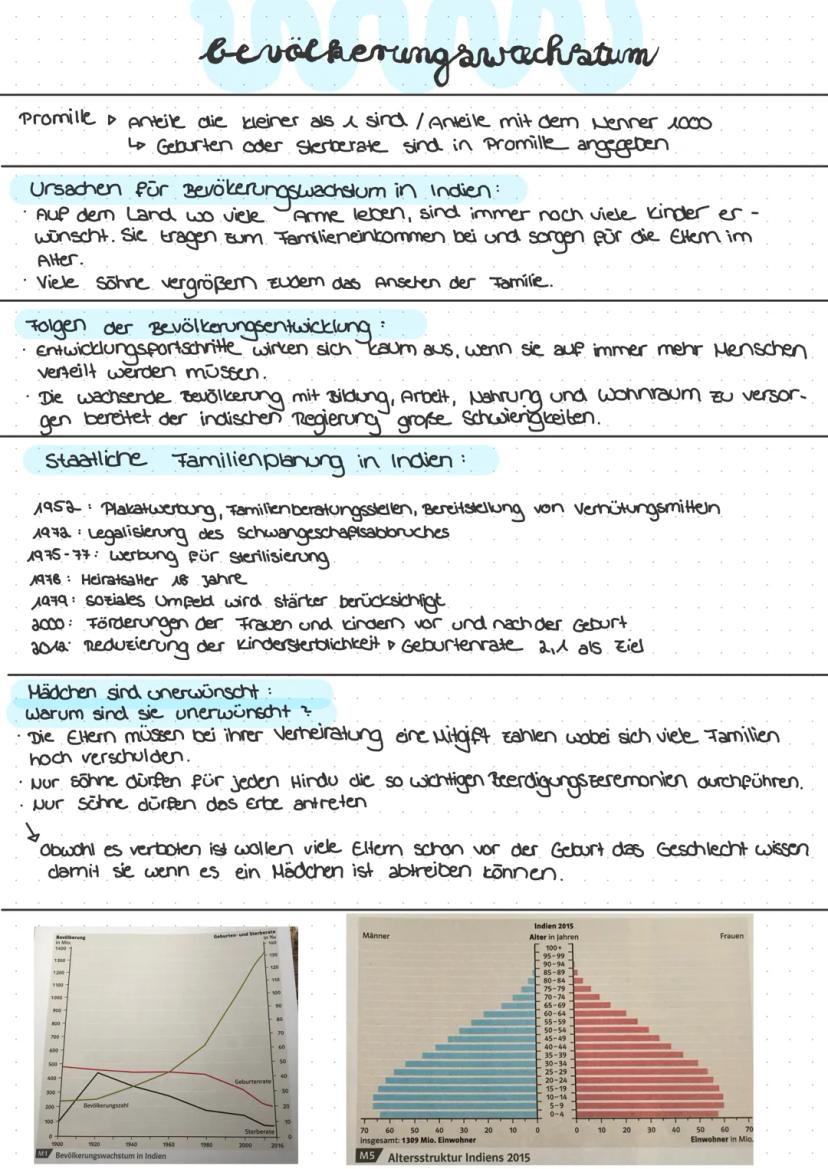 bevölkerungswachstum
Promille ▷ Anteile die kleiner als 1 sind / Anteile mit dem Nenner 1000
↳ Geburten oder Sterberate sind in Promille angegeben
Ursachen für Bevökerungswachstum in Indien:
· Auf dem Land wo viele Arme leben, sind immer noch viele Kinder er-
wünscht. Sie tragen zum Familieneinkommen bei und sorgen für die Eltern im
Alter.
· Viele Söhne vergrößern zudem das Ansehen der Familie.
Folgen der Bevölkerungsentwicklung:
· Entwicklungsfortschritte wirken sich kaum aus, wenn sie auf immer mehr Menschen
verteilt werden müssen.
· Die wachsende Bevölkerung mit Bildung, Arbeit, Nahrung und Wohnraum zu versor-
gen bereitet der indischen Regierung große Schwierigkeiten.
Staatliche Familienplanung in Indien:
1952: Plakatwerbung, Familienberatungsstellen, Bereitstellung von Verhütungsmitteln
1972: Legalisierung des Schwangeschaftsabbruches
1975-77: Werbung für Sterilisierung
1978: Heiratsalter 18 Jahre
1979: Soziales Umfeld wird stärker berücksichtigt
2000: Förderungen der Frauen und Kindern vor und nach der Geburt
2012: Reduzierung der Kindersterblichkeit ▷ Geburtenrate 2,1 als Ziel
Mädchen sind unerwünscht:
Warum sind sie unerwünscht?
· Die Eltern müssen bei ihrer Verheiratung eine Mitgift zahlen wobei sich viele Familien
hoch verschulden.
· Nur Söhne dürfen für jeden Hindu die so wichtigen Beerdigungszeremonien durchführen.
· Nur Söhne dürfen das Erbe antreten
↓
Obwohl es verboten ist wollen viele Eltern schon vor der Geburt das Geschlecht wissen
damit sie wenn es ein Mädchen ist abtreiben können.
Bevölkerung in Mio. Geburten- und Sterberate in ‰
1400
1300
1200
1100
1000
900
800
700
600
500
400
300
200
100
0
140
130
120
110
100
90
80
70
60
50
40
30
20
10
0
Geburtenrate
Bevölkerungszahl
Sterberate
1900 1920 1940 1960 1980 2000 2016
M1 Bevölkerungswachstum in Indien
Indien 2015
Männer Alter in Jahren Frauen
100+
95-99
90-94
85-89
80-84
75-79
70-74
65-69
60-64
55-59
50-54
45-49
40-44
35-39
30-34
25-29
20-24
15-19
10-14
5-9
0-4
70 60 50 40 30 20 10 0 0 10 20 30 40 50 60 70
insgesamt: 1309 Mio. Einwohner Einwohner in Mio.
M5 Altersstruktur Indiens 2015